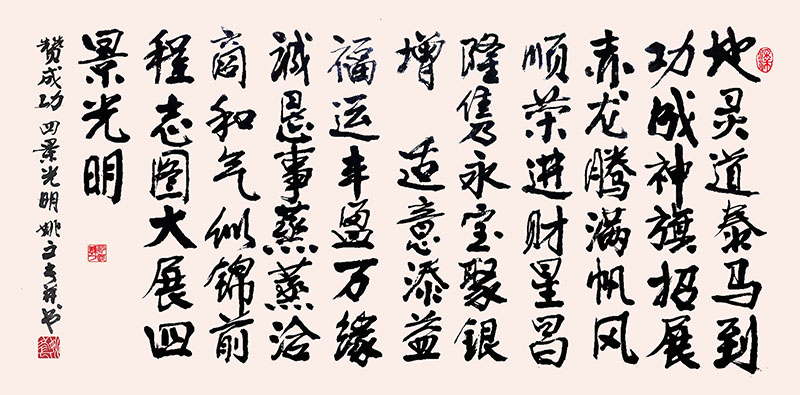 地灵道泰马到
功成神旗招展
赤龙腾满帆风
顺荣进财星昌
隆隽永宝聚银
增 适意添益
福运丰盈万缘
诚恳事蒸蒸洽
商和气似锦前
程志图大展四
景光明
赞成功四景光明 姚立 书